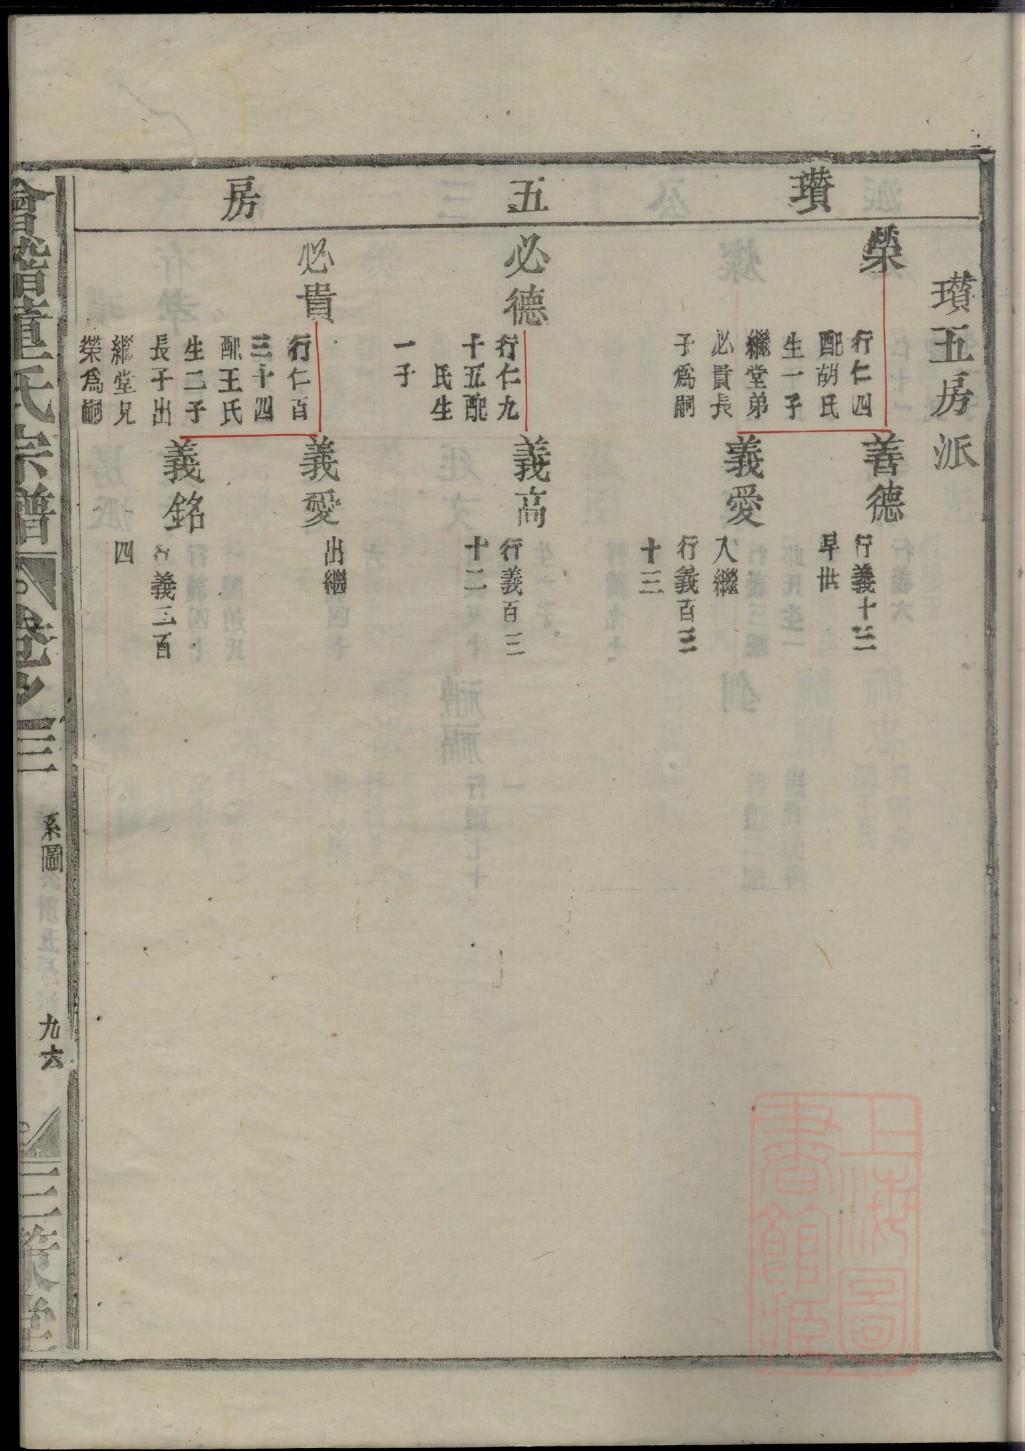 瓚五房
瓚五房派
榮
行仁四
配胡氏
生一子
繼堂弟
必貴長
子爲嗣
善德
行義十三
早世
義愛
入繼
行義百三
十三
必德
行仁九
十五配
氏生
一子
義高
行義百三
十二
必貴
行仁百
三十四
配王氏
生二子
長子出
繼堂兄
榮爲嗣
義愛
出繼
義銘
行義三百
四
會稽董氏宗譜
卷之三
系圖
九六
三策堂
上海圖
書館藏